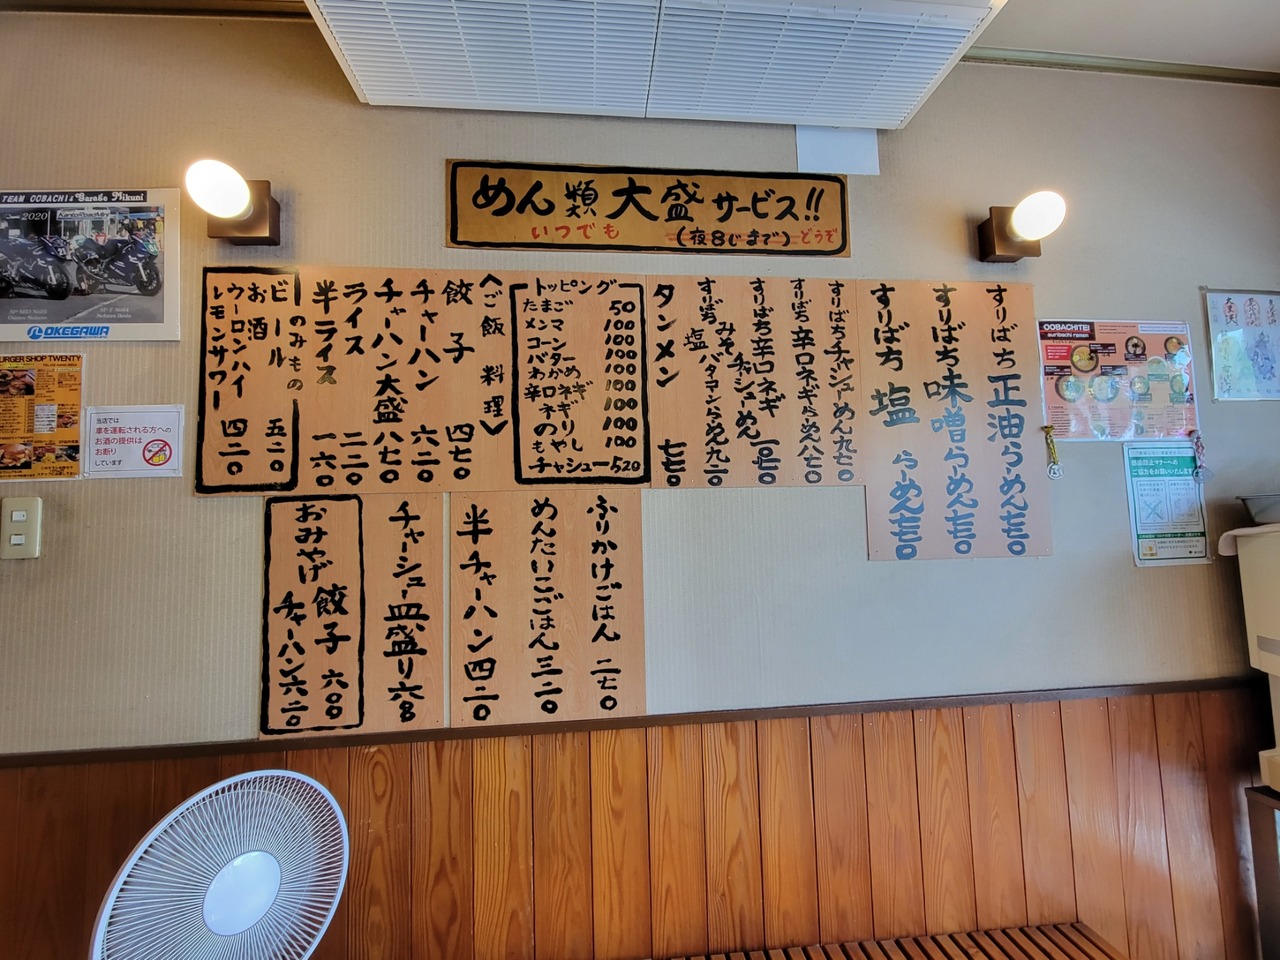 めん類大盛サービス!!
いつでも (夜8じまで)どうぞ
すりばち正油らーめん七七〇
すりばち味噌らーめん七七〇
すりばち塩らーめん七七〇
すりばちチャシューめん九七〇
すりばち辛口ネギらーめん八七〇
すりばち辛口ネギチャシューめん
みそバタマンらーめん九二〇
すりばち塩
タンメン 七七〇
トッピング
たまご 50
メンマ 100
コーン 100
バター 100
わかめ 100
辛口ネギ 100
ネギ 100
のり 100
もやし 100
チャシュー 520
〈ご飯料理〉
餃子 四七〇
チャーハン 六二〇
チャーハン大盛 八七〇
ライス 二二〇
半ライス 一六〇
のみもの
ビール 五二〇
お酒
ウーロンハイ
レモンサワー 四二〇
ふりかけごはん 二七〇
めんたいこごはん 三二〇
半チャーハン 四二〇
チャーシュー皿盛り
おみやげ
餃子 六〇〇
チャーハン 六二〇
TEAM OOBACHI & Garage Mikuni
2020
OKEGAWA
BURGER SHOP TWENTY
当店では
車を運転される方への
お酒の提供は
お断り
しています
OOBACHITEI
suribachi ramen
感染防止マナーへの
ご協力をお願いいたします